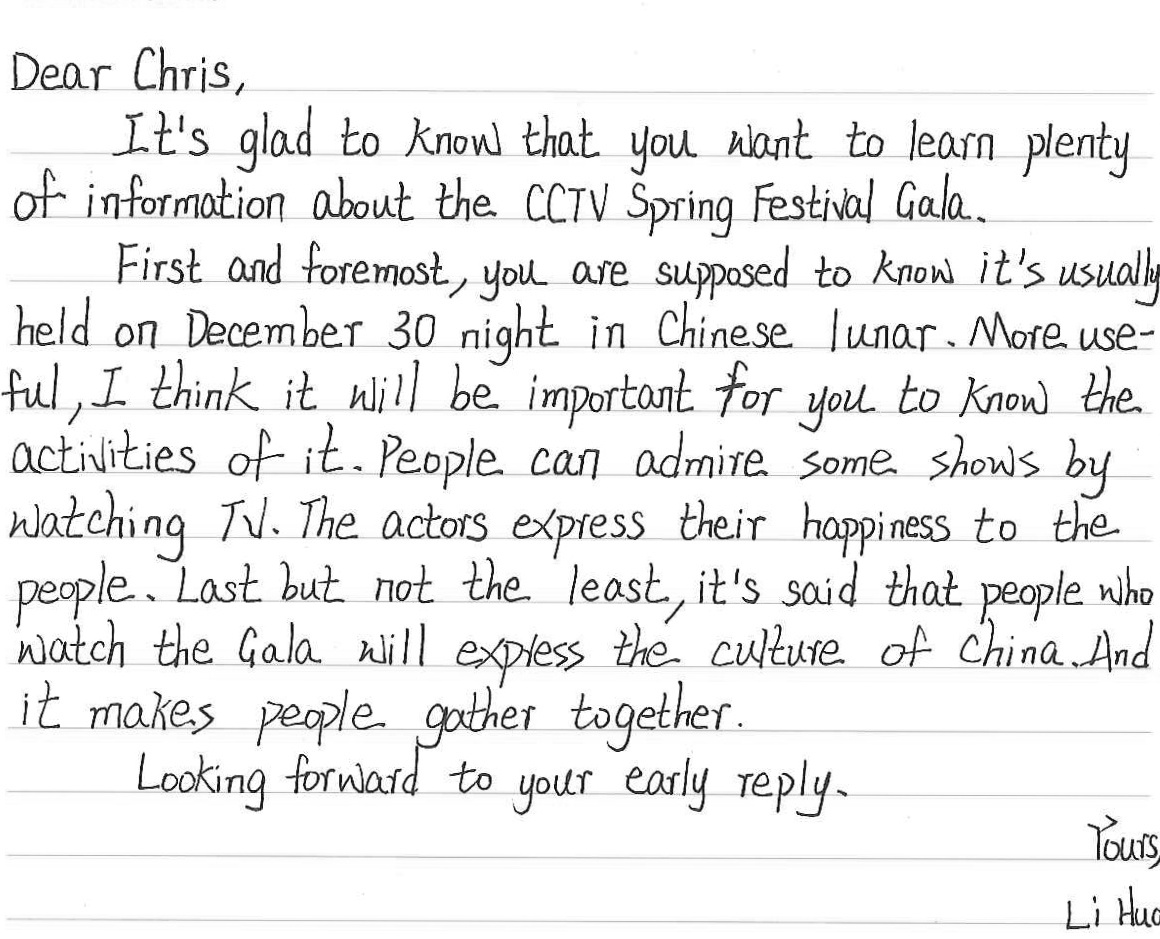 Dear Chris,
It's glad to know that you want to learn plenty
of information about the CCTV Spring Festival Gala.
First and foremost, you are supposed to know it's usually
held on December 30 night in Chinese lunar. More use-
ful, I think it will be important for you to know the
activities of it. People can admire some shows by
watching TV. The actors express their happiness to the
people. Last but not the least, it's said that people who
watch the Gala will express the culture of China. And
it makes people gather together.
Looking forward to your early reply.
Yours,
Li Hua